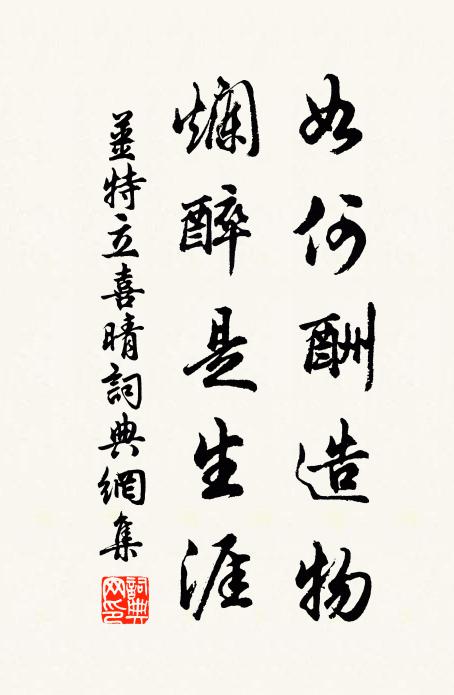 如何酬造物
爛醉是生涯
姜特立喜晴詞典網集
詞典網印